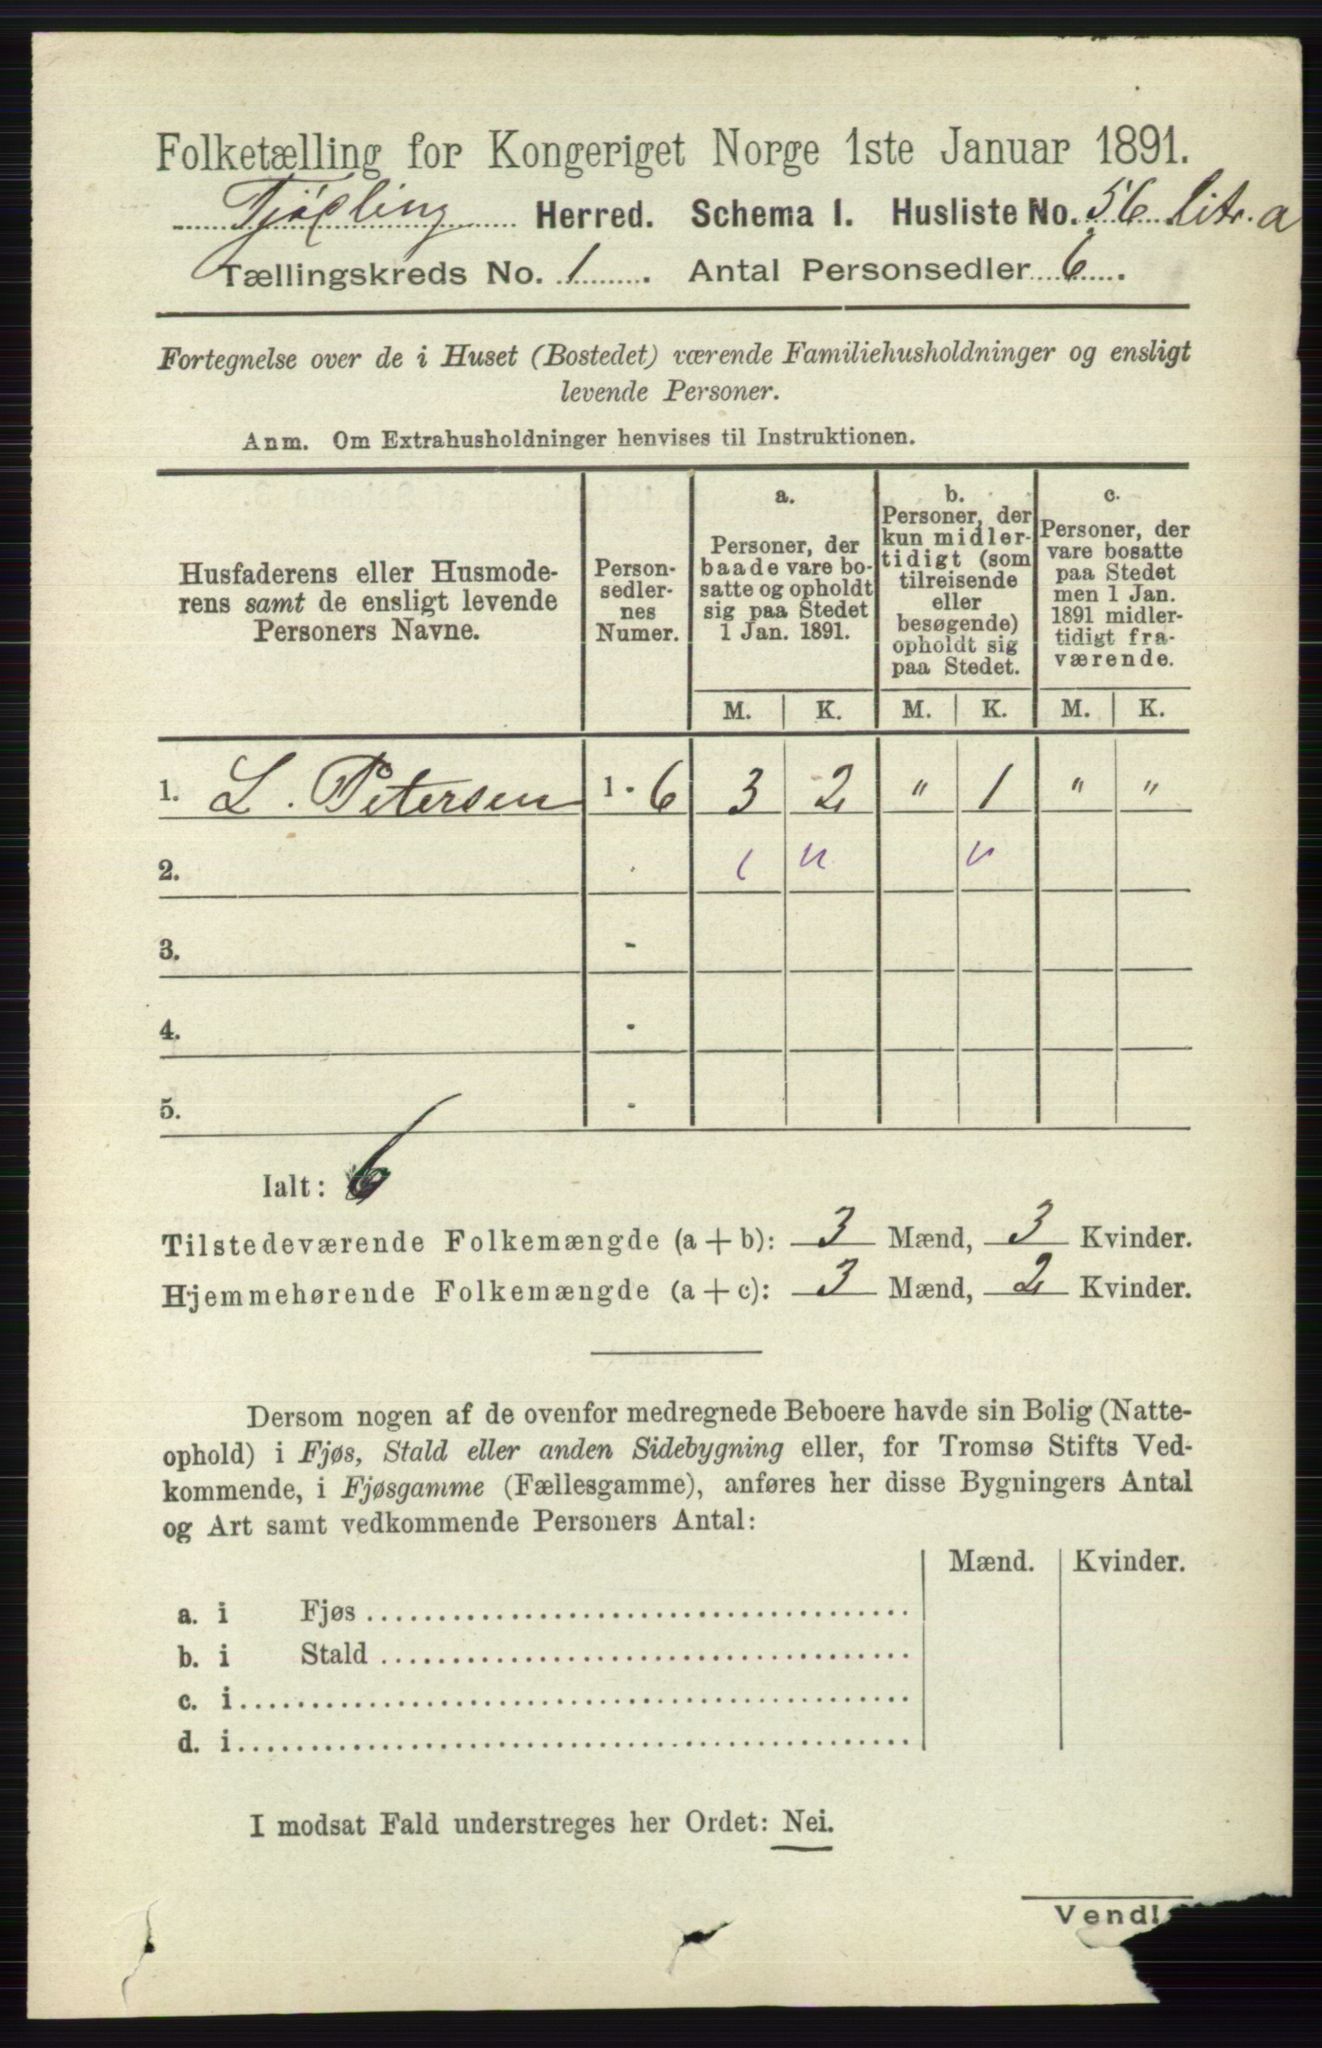 Folketælling for Kongeriget Norge 1ste Januar 1891.
Tjølling Herred. Schema 1. Husliste No. 56 Litr. a
Tællingskreds No. 1. Antal Personsedler 6.
Fortegnelse over de i Huset (Bostedet) værende Familiehusholdninger og ensligt
levende Personer.
Anm. Om Extrahusholdninger henvises til Instruktionen.
Husfaderens eller Husmode-
rens samt de ensligt levende
Personers Navne.
Person-
sedler-
nes
Numer.
a.
Personer, der
baade vare bo-
satte og opholdt
sig paa Stedet
1 Jan. 1891.
b.
Personer, der
kun midler-
tidigt (som
tilreisende
eller
besøgende)
opholdt sig
paa Stedet.
c.
Personer, der
vare bosatte
paa Stedet
men 1 Jan.
1891 midler-
tidigt fra-
værende.
M. K. M. K. M. K.
1. L. Petersen 1 - 6 3 2 " 1 " "
2.
3. -
4. -
5. -
Ialt: 6
Tilstedeværende Folkemængde (a + b): 3 Mænd, 3 Kvinder.
Hjemmehørende Folkemængde (a + c): 3 Mænd, 2 Kvinder.
Dersom nogen af de ovenfor medregnede Beboere havde sin Bolig (Natte-
ophold) i Fjøs, Stald eller anden Sidebygning eller, for Tromsø Stifts Ved-
kommende, i Fjøsgamme (Fællesgamme), anføres her disse Bygningers Antal
og Art samt vedkommende Personers Antal:
Mænd. Kvinder.
a. i Fjøs
b. i Stald
c. i
d. i
I modsat Fald understreges her Ordet: Nei.
Vend!